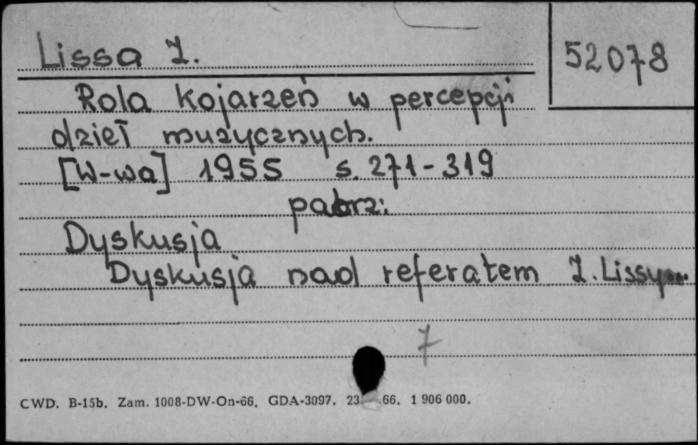 Lissa Z.
52078
Rola kojarzeń w percepcji
dzieł muzycznych.
[W-wa] 1955 s. 271-319
patrz:
Dyskusja
Dyskusja nad referatem Z. Lissy...
7
CWD. B-15b. Zam. 1008-DW-On-66. GDA-3097. 23 66. 1 906 000.